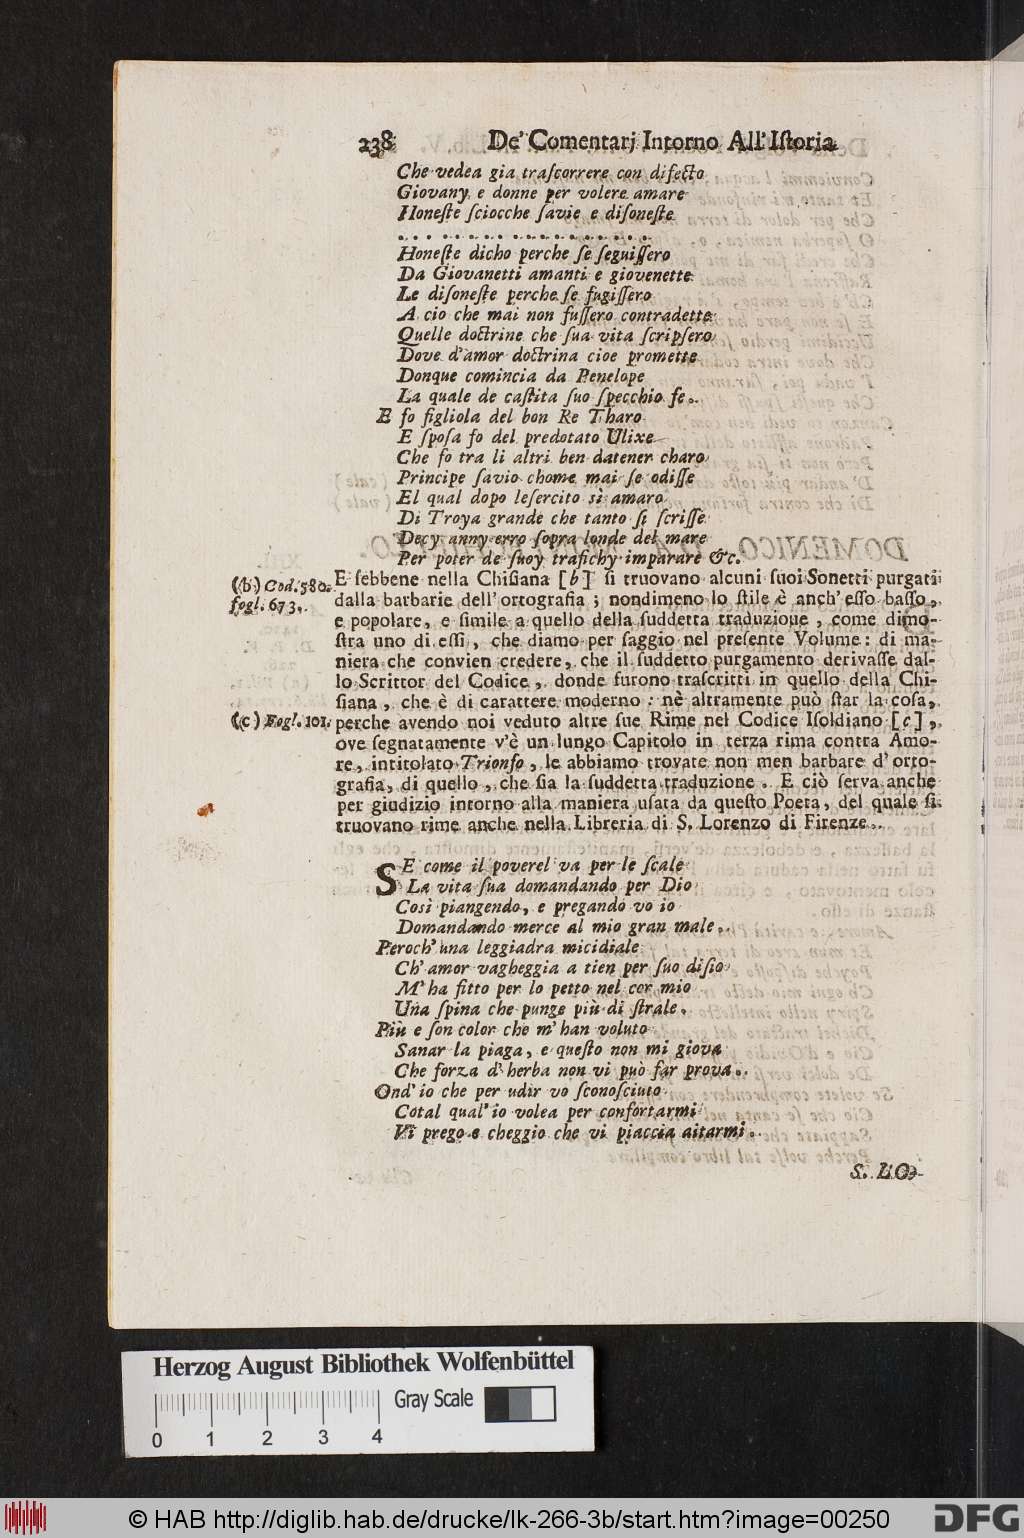 238 De' Comentarj Intorno All' Iſtoria
Che vedea gia traſcorrere con difecto
Giovany e donne per volere amare
Honeſte ſciocche ſavie e diſoneſte
. . . . . . . . . . . . . . . . . . . .
Honeſte dicho perche ſe ſeguiſſero
Da Giovanetti amanti e giovenette
Le diſoneſte perche ſe fugiſſero
A cio che mai non fuſſero contradette
Quelle doctrine che ſua vita ſcripſero
Dove d'amor doctrina cioe promette
Donque comincia da Penelope
La quale de caſtita ſuo ſpecchio fe.
E fo figliola del bon Re Tharo
E ſpoſa fo del predotato Ulixe
Che fo tra li altri ben datener charo
Principe ſavio chome mai ſe odiſſe
El qual dopo leſercito sì amaro
Di Troya grande che tanto ſi ſcriſſe
Decy anny erro ſopra londe del mare
Per poter de ſuoy trafichy imparare &c.
(b) Cod. 580. fogl. 673.
E ſebbene nella Chiſiana [b] ſi truovano alcuni ſuoi Sonetti purgati
dalla barbarie dell' ortografia; nondimeno lo ſtile è anch' eſſo baſſo,
e popolare, e ſimile a quello della ſuddetta traduzione, come dimo-
ſtra uno di eſſi, che diamo per ſaggio nel preſente Volume: di ma-
niera che convien credere, che il ſuddetto purgamento derivaſſe dal-
lo Scrittor del Codice, donde furono traſcritti in quello della Chi-
ſiana, che è di carattere moderno: nè altramente può ſtar la coſa,
(c) Fogl. 101.
perche avendo noi veduto altre ſue Rime nel Codice Iſoldiano [c],
ove ſegnatamente v'è un lungo Capitolo in terza rima contra Amo-
re, intitolato Trionfo, le abbiamo trovate non men barbare d' orto-
grafia, di quello, che ſia la ſuddetta traduzione. E ciò ſerva anche
per giudizio intorno alla maniera uſata da queſto Poeta, del quale ſi
truovano rime anche nella Libreria di S. Lorenzo di Firenze.
SE come il poverel va per le ſcale
La vita ſua domandando per Dio
Così piangendo, e pregando vo io
Domandando merce al mio gran male.
Peroch' una leggiadra micidiale
Ch' amor vagheggia a tien per ſuo diſio
M' ha fitto per lo petto nel cor mio
Una ſpina che punge più di ſtrale.
Più e ſon color che m' han voluto
Sanar la piaga, e queſto non mi giova
Che forza d' herba non vi può far prova.
Ond' io che per udir vo ſconoſciuto
Cotal qual' io volea per confortarmi
Vi prego e cheggio che vi piaccia aitarmi.
S. LO-
Herzog August Bibliothek Wolfenbüttel
Gray Scale
0 1 2 3 4
© HAB http://diglib.hab.de/drucke/lk-266-3b/start.htm?image=00250
DFG